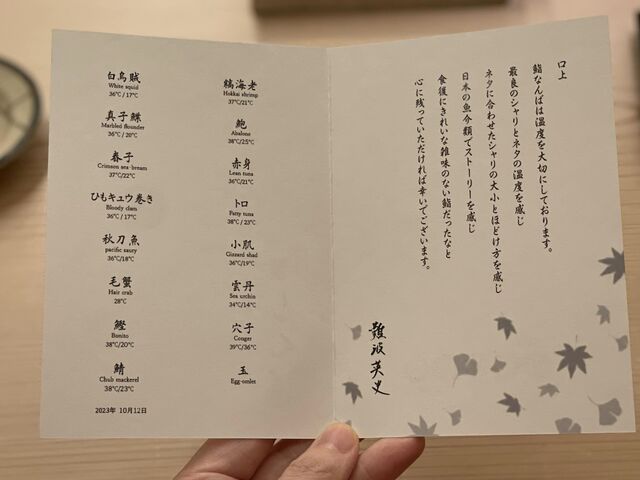 白烏賊
White squid
36℃ / 17℃
真子鰈
Marbled flounder
36℃ / 20℃
春子
Crimson sea-bream
37℃/22℃
ひもキュウ巻き
Bloody clam
36℃ / 17℃
秋刀魚
pacific saury
36℃/18℃
毛蟹
Hair crab
28℃
鰹
Bonito
38℃/20℃
鯖
Chub mackerel
38℃/23℃
2023年 10月12日
縞海老
Hokkai shrimp
37℃/21℃
鮑
Abalone
38℃/25℃
赤身
Lean tuna
36℃/21℃
トロ
Fatty tuna
38℃ / 23℃
小肌
Gizzard shad
36℃/19℃
雲丹
Sea urchin
34℃/14℃
穴子
Conger
39℃/36℃
玉
Egg-omlet
口上
鮨なんばは温度を大切にしております。
最良のシャリとネタの温度を感じ
ネタに合わせたシャリの大小とほどけ方を感じ
日本の魚介類でストーリーを感じ
食後にきれいな雑味のない鮨だったなと
心に残っていただければ幸いでございます。
難波英史